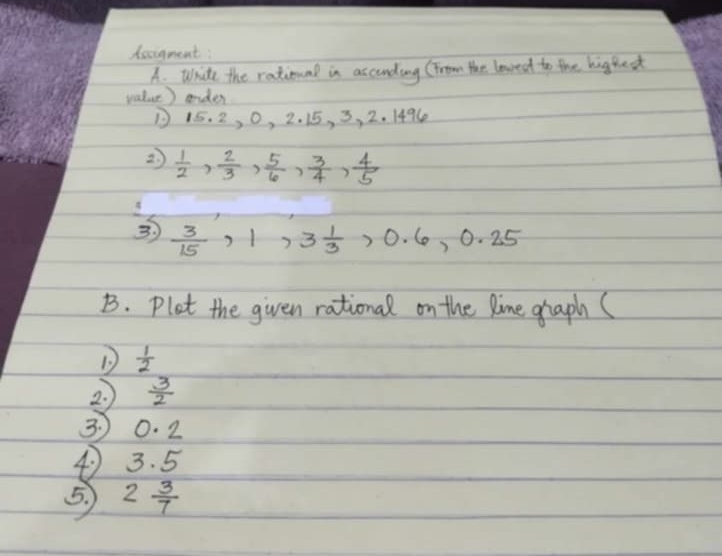 Assigment :
A. Write the rational in ascending (From the lowest to the highest
value) order
1.) 15.2, 0, 2.15, 3, 2.1496
2.) 1/2, 2/3, 5/6, 3/4, 4/5
3.) 3/15, 1, 3 1/3, 0.6, 0.25
B. Plot the given rational on the line graph (
1.) 1/2
2.) 3/2
3.) 0.2
4.) 3.5
5.) 2 3/7